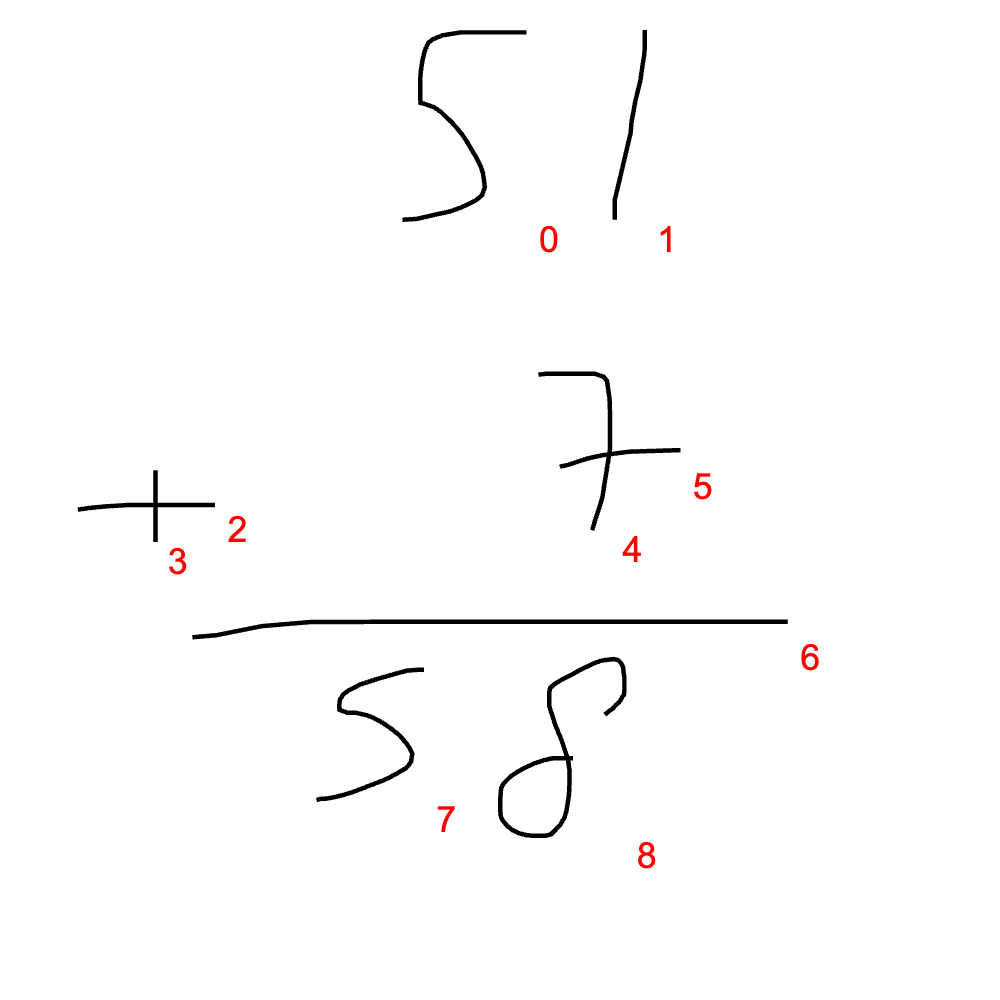 51
0 1
7
5
+
2
3
4
6
58
7
8